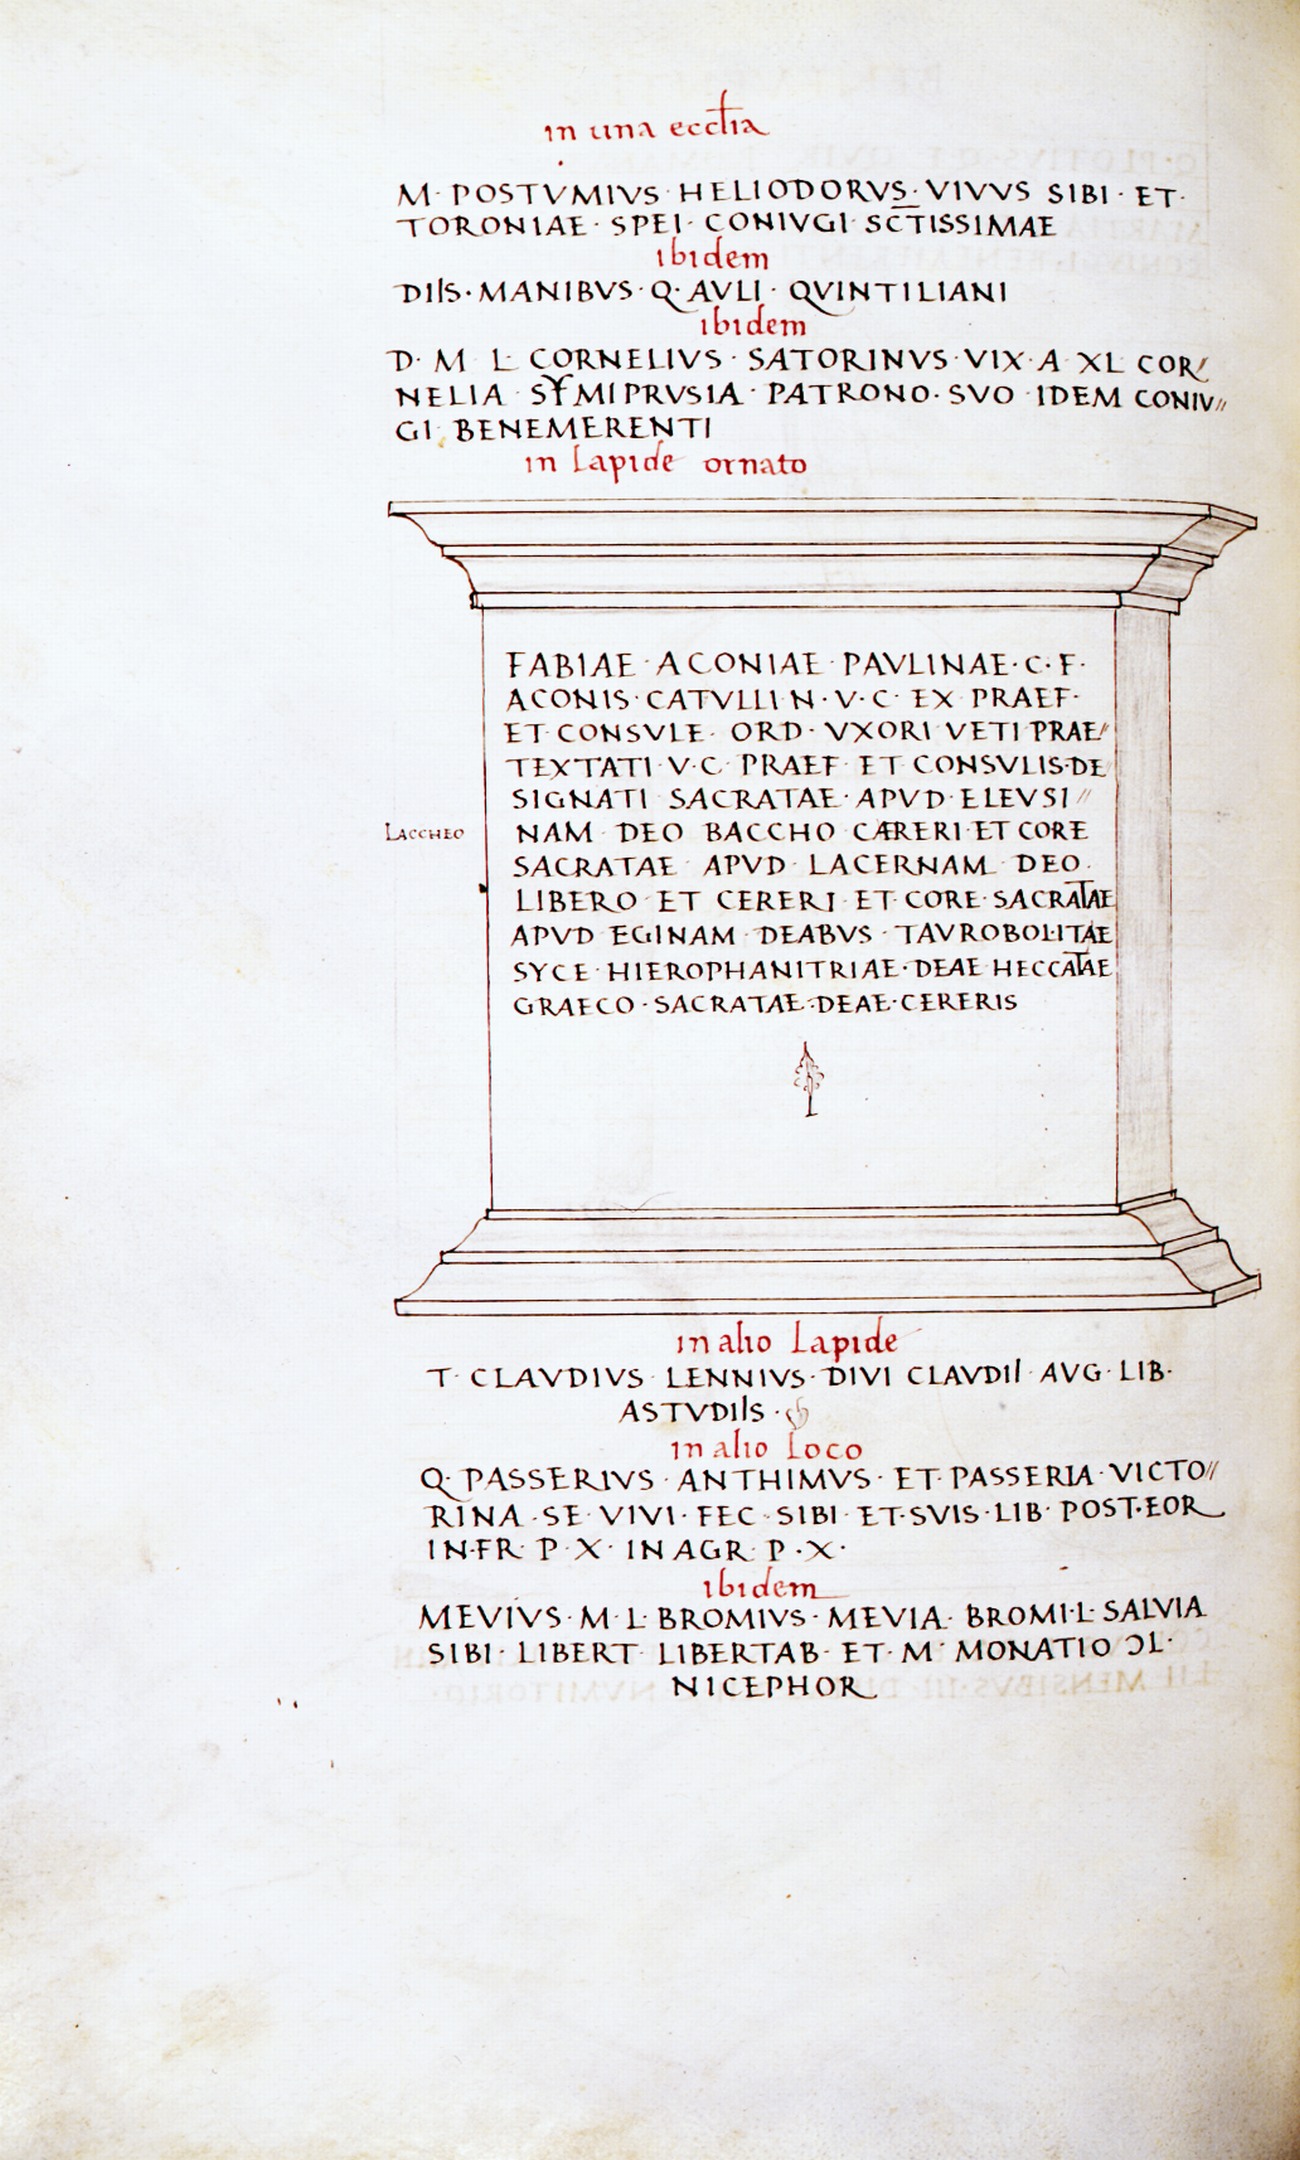 in una ecctia
M· POSTVMIVS · HELIODORVS · VIVVS SIBI · ET·
TORONIAE · SPEI · CONIVGI SCTISSIMAE
ibidem
DIIS · MANIBVS · Q · AVLI · QVINTILIANI
ibidem
D· M L· CORNELIVS · SATORINVS · VIX · A XL COR/
NELIA · SYMIPRVSIA · PATRONO · SVO · IDEM CONIV//
GI BENEMERENTI
in Lapide ornato
FABIAE · ACONIAE · PAVLINAE · C · F·
ACONIS · CATVLLI N · V · C · EX PRAEF·
ET CONSVLE · ORD · VXORI VETI PRAE//
TEXTATI · V · C · PRAEF · ET CONSVLIS·DE
SIGNATI SACRATAE · APVD · ELEVSI //
LACCHEO
NAM DEO BACCHO CÆRERI·ET CORE
SACRATAE APVD · LACERNAM DEO·
LIBERO · ET CERERI · ET · CORE · SACRATAE
APVD EGINAM · DEABVS · TAVROBOLITAE
SYCE · HIEROPHANITRIAE · DEAE HECCATAE
GRAECO · SACRATAE · DEAE · CERERIS
in alio Lapide
T· CLAVDIVS · LENNIVS · DIVI CLAVDII AVG · LIB·
ASTVDIIS ·
in alio Loco
Q· PASSERIVS · ANTHIMVS · ET · PASSERIA · VICTO//
RINA · SE · VIVI · FEC · SIBI · ET·SVIS · LIB· POST·EOR
IN·FR· P · X · IN AGR· P · X ·
ibidem
MEVIVS · M · L· BROMIVS · MEVIA · BROMI·L· SALVIA
SIBI · LIBERT LIBERTAB · ET · M· MONATIO ƆL·
NICEPHOR